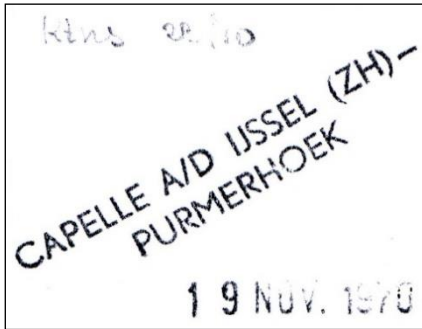 Ktns 22/10
CAPELLE A/D IJSSEL (ZH)—
PURMERHOEK
19 NOV. 1970